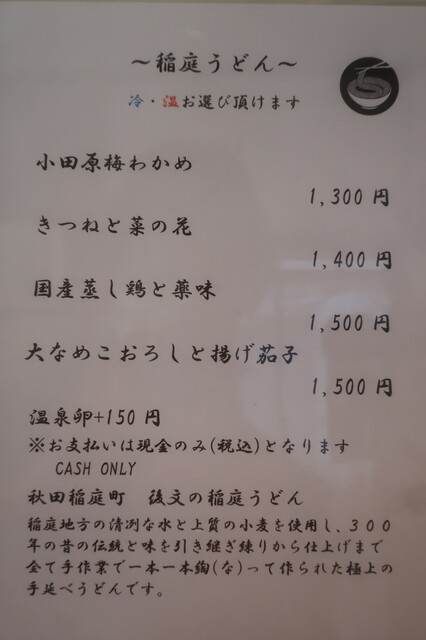 ～稲庭うどん～
冷・温お選び頂けます
小田原梅わかめ
1,300 円
きつねと菜の花
1,400 円
国産蒸し鶏と薬味
1,500 円
大なめこおろしと揚げ茄子
1,500 円
温泉卵+150 円
※お支払いは現金のみ(税込)となります
CASH ONLY
秋田稲庭町　後文の稲庭うどん
稲庭地方の清冽な水と上質の小麦を使用し、３００
年の昔の伝統と味を引き継ぎ練りから仕上げまで
全て手作業で一本一本綯(な)って作られた極上の
手延べうどんです。